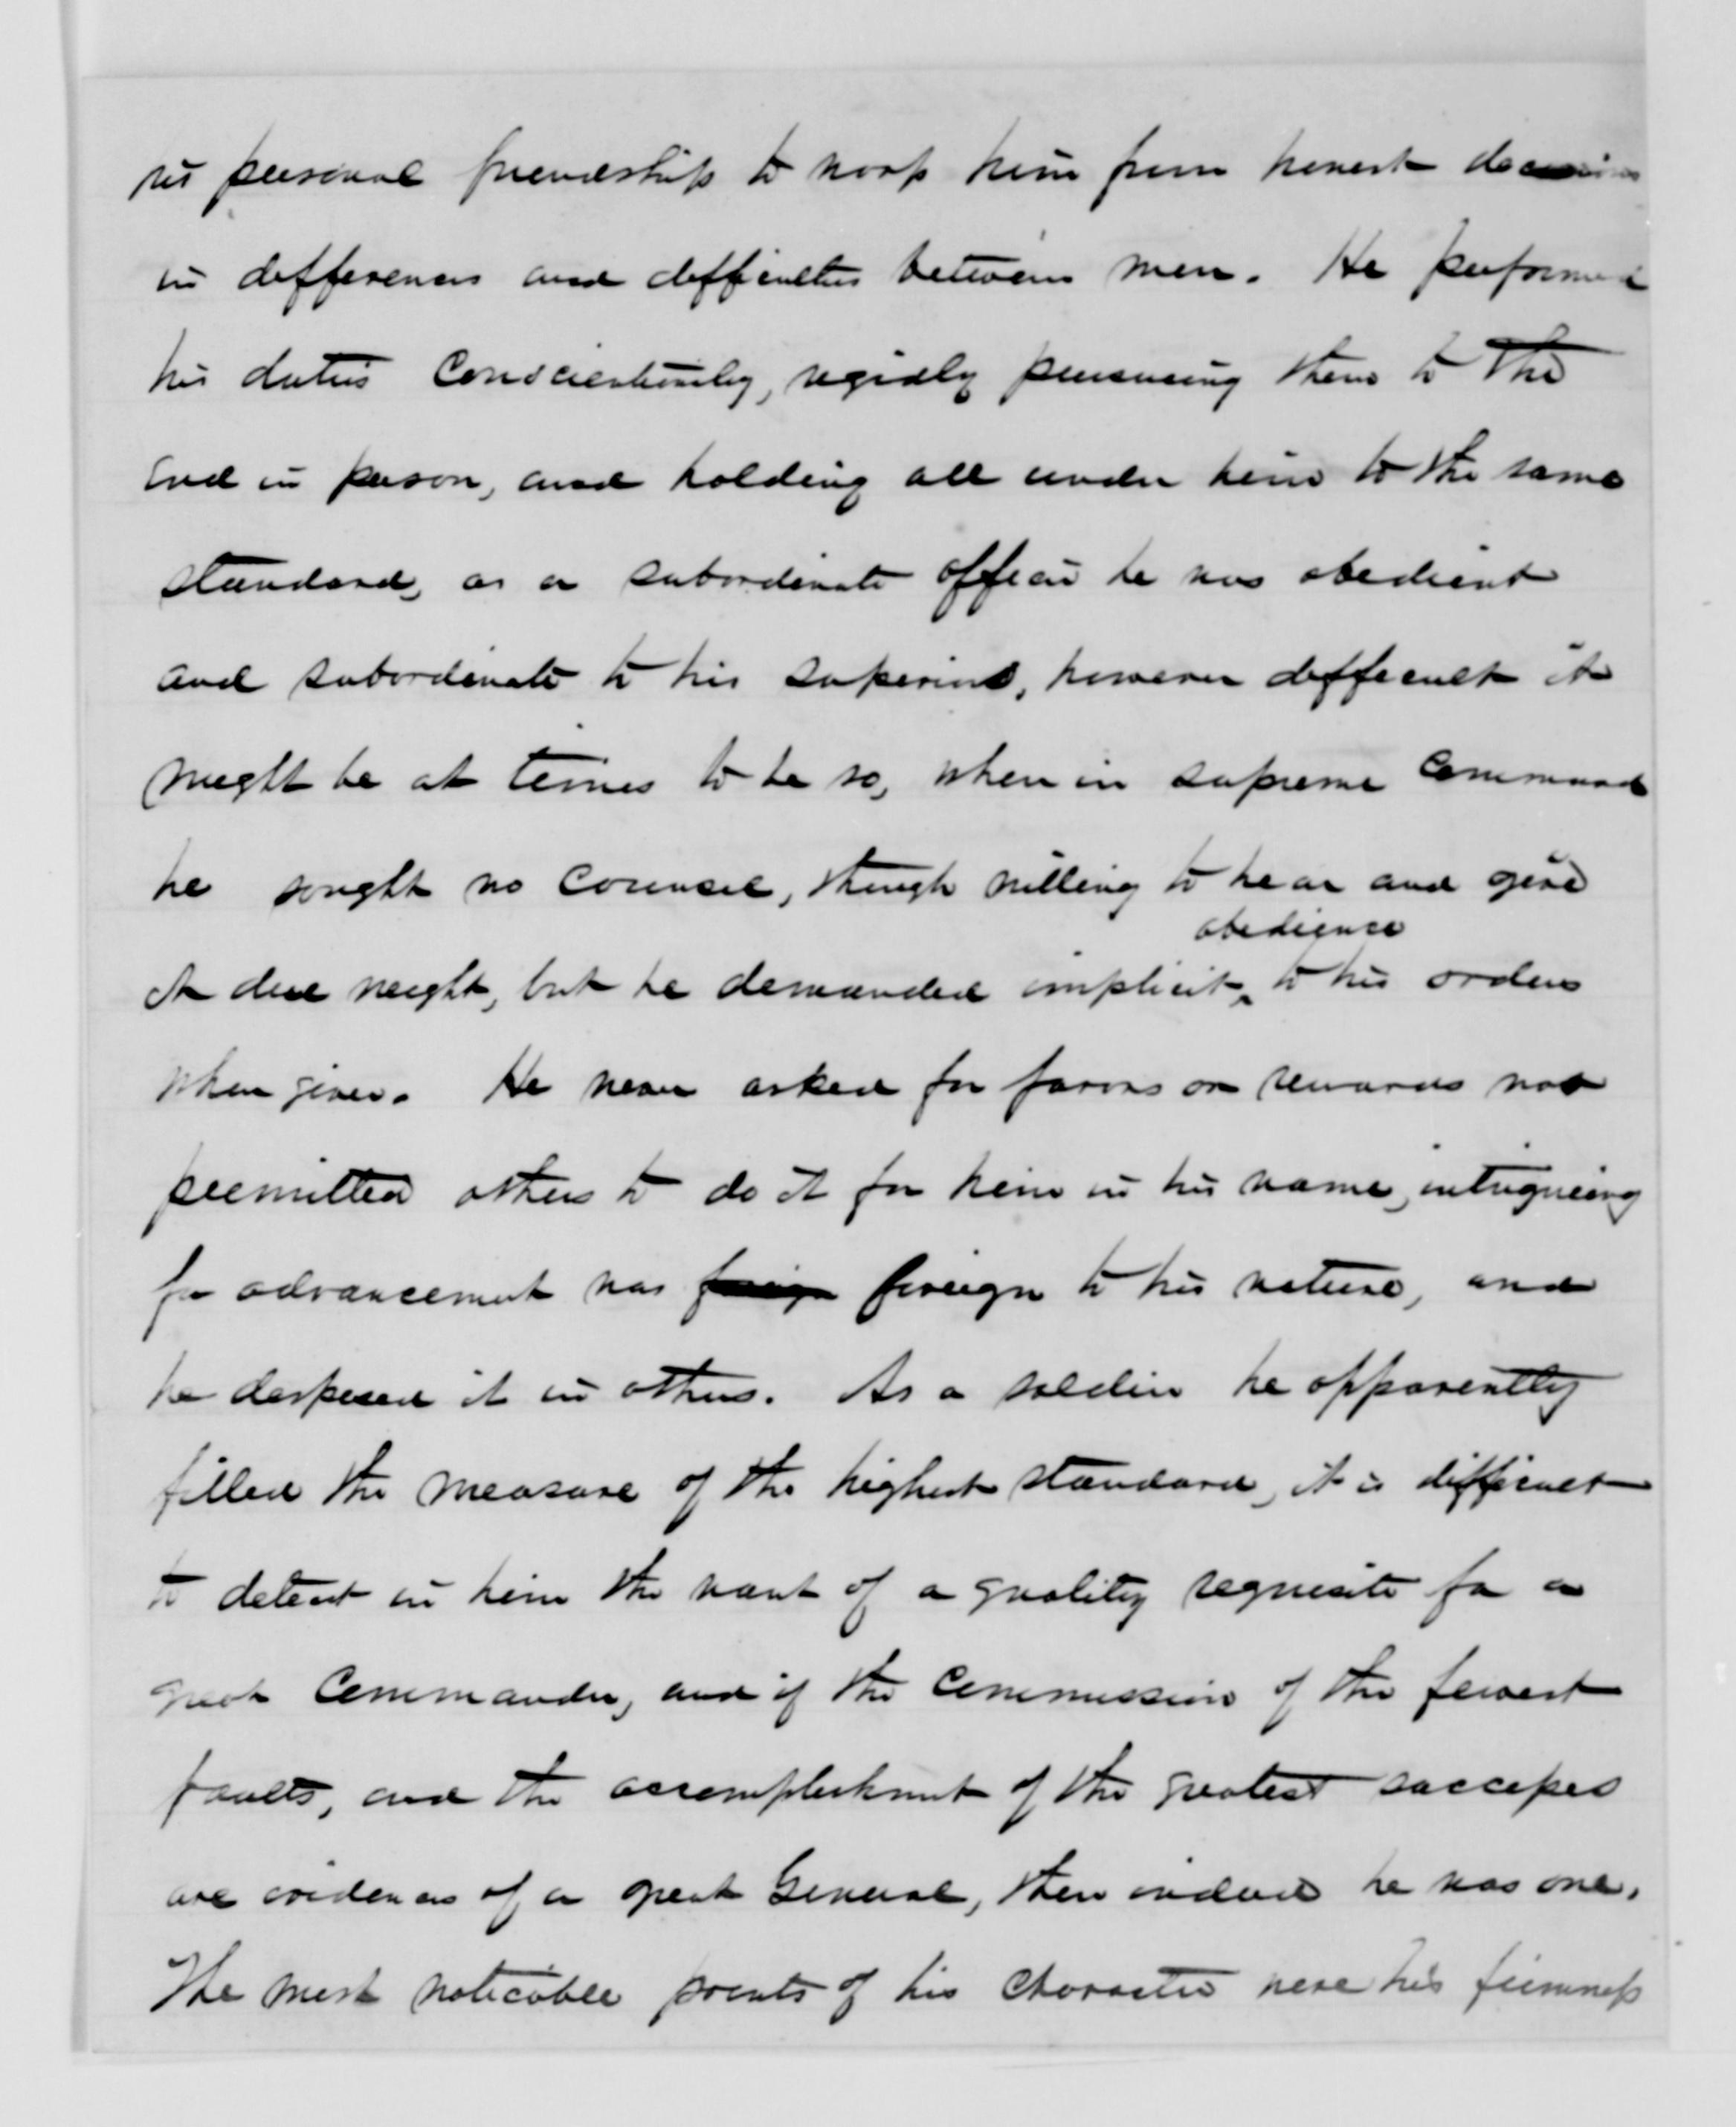 his personal friendship to warp him from honest decisions
in differences and difficulties between men. He performed
his duties Conscientiously, rigidly pursuing them to the
End in person, and holding all under him to the same
standard, as a subordinate officer he was obedient
and subordinate to his superiors, however difficult it
might be at times to be so, when in supreme Command
he sought no Counsel, though willing to hear and give
obedience
it due weight, but he demanded implicit ^ to his orders
when given. He never asked for favors or rewards nor
permitted others to do it for him in his name, intrigueing
for advancement was foreign foreign to his nature, and
he despised it in others. As a soldier he apparently
filled the measure of the highest standard, it is difficult
to detect in him the want of a quality requisite for a
great Commander, and if the Commission of the fewest
faults, and the accomplishment of the greatest successes
are evidences of a great General, then indeed he was one.
The most noticable points of his Character were his firmness